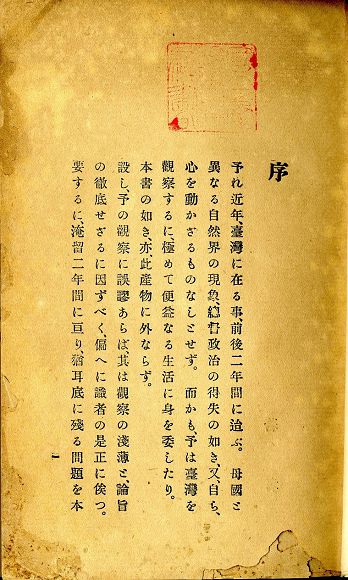 序
予れ近年、臺灣に在る事、前後二年間に迨ぶ。母國と
異なる自然界の現象、總督政治の得失の如き、又、自ら、
心を動かさるものなしとせず。而かも予は臺灣を
觀察するに極めて便益なる生活に身を委したり。
本書の如き、亦、此產物に外ならず。
設し、予の觀察に誤謬あらば、其は觀察の淺薄と、論旨
の徹底せざるに因ずべく、偏へに識者の是正に俟つ。
要するに、淹留二年間に亘り、猶耳底に殘る問題を本
一